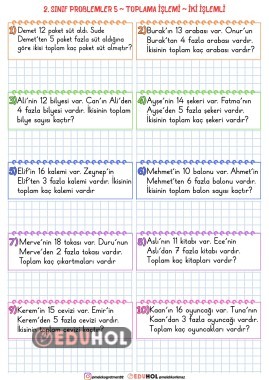 2. SINIF PROBLEMLER 5 - TOPLAMA İŞLEMİ - İKİ İŞLEMLİ
1) Demet 12 paket süt aldı. Sude
Demet'ten 5 paket fazla süt aldığına
göre ikisi toplam kaç paket süt almıştır?
2) Burak'ın 13 arabası var. Onur'un
Burak'tan 4 fazla arabası vardır.
İkisinin toplam kaç arabası vardır?
3) Ali'nin 12 bilyesi var. Can'ın Ali'den
4 fazla bilyesi vardır. İkisinin toplam
bilye sayısı kaçtır?
4) Ayşe'nin 14 şekeri var. Fatma'nın
Ayşe'den 5 fazla şekeri vardır.
İkisinin toplam kaç şekeri vardır?
5) Elif'in 16 kalemi var. Zeynep'in
Elif'ten 3 fazla kalemi vardır. İkisinin
toplam kaç kalemi vardır
6) Mehmet'in 10 balonu var. Ahmet'in
Mehmet'ten 6 fazla balonu vardır.
İkisinin toplam balon sayısı kaçtır?
7) Merve'nin 18 tokası var. Duru'nun
Merve'den 2 fazla tokası vardır.
Toplam kaç çıkartmaları vardır
8) Aslı'nın 11 kitabı var. Ece'nin
Aslı'dan 7 fazla kitabı vardır.
Toplam kaç kitapları vardır?
9) Kerem'in 15 cevizi var. Emir'in
Kerem'den 5 fazla cevizi vardır.
İkisinin toplam cevizi kaçtır?
10) Kaan'ın 16 oyuncağı var. Tuna'nın
Kaan'dan 3 fazla oyuncağı vardır.
Toplam kaç oyuncakları vardır?
EDUHOL
EDUHOL